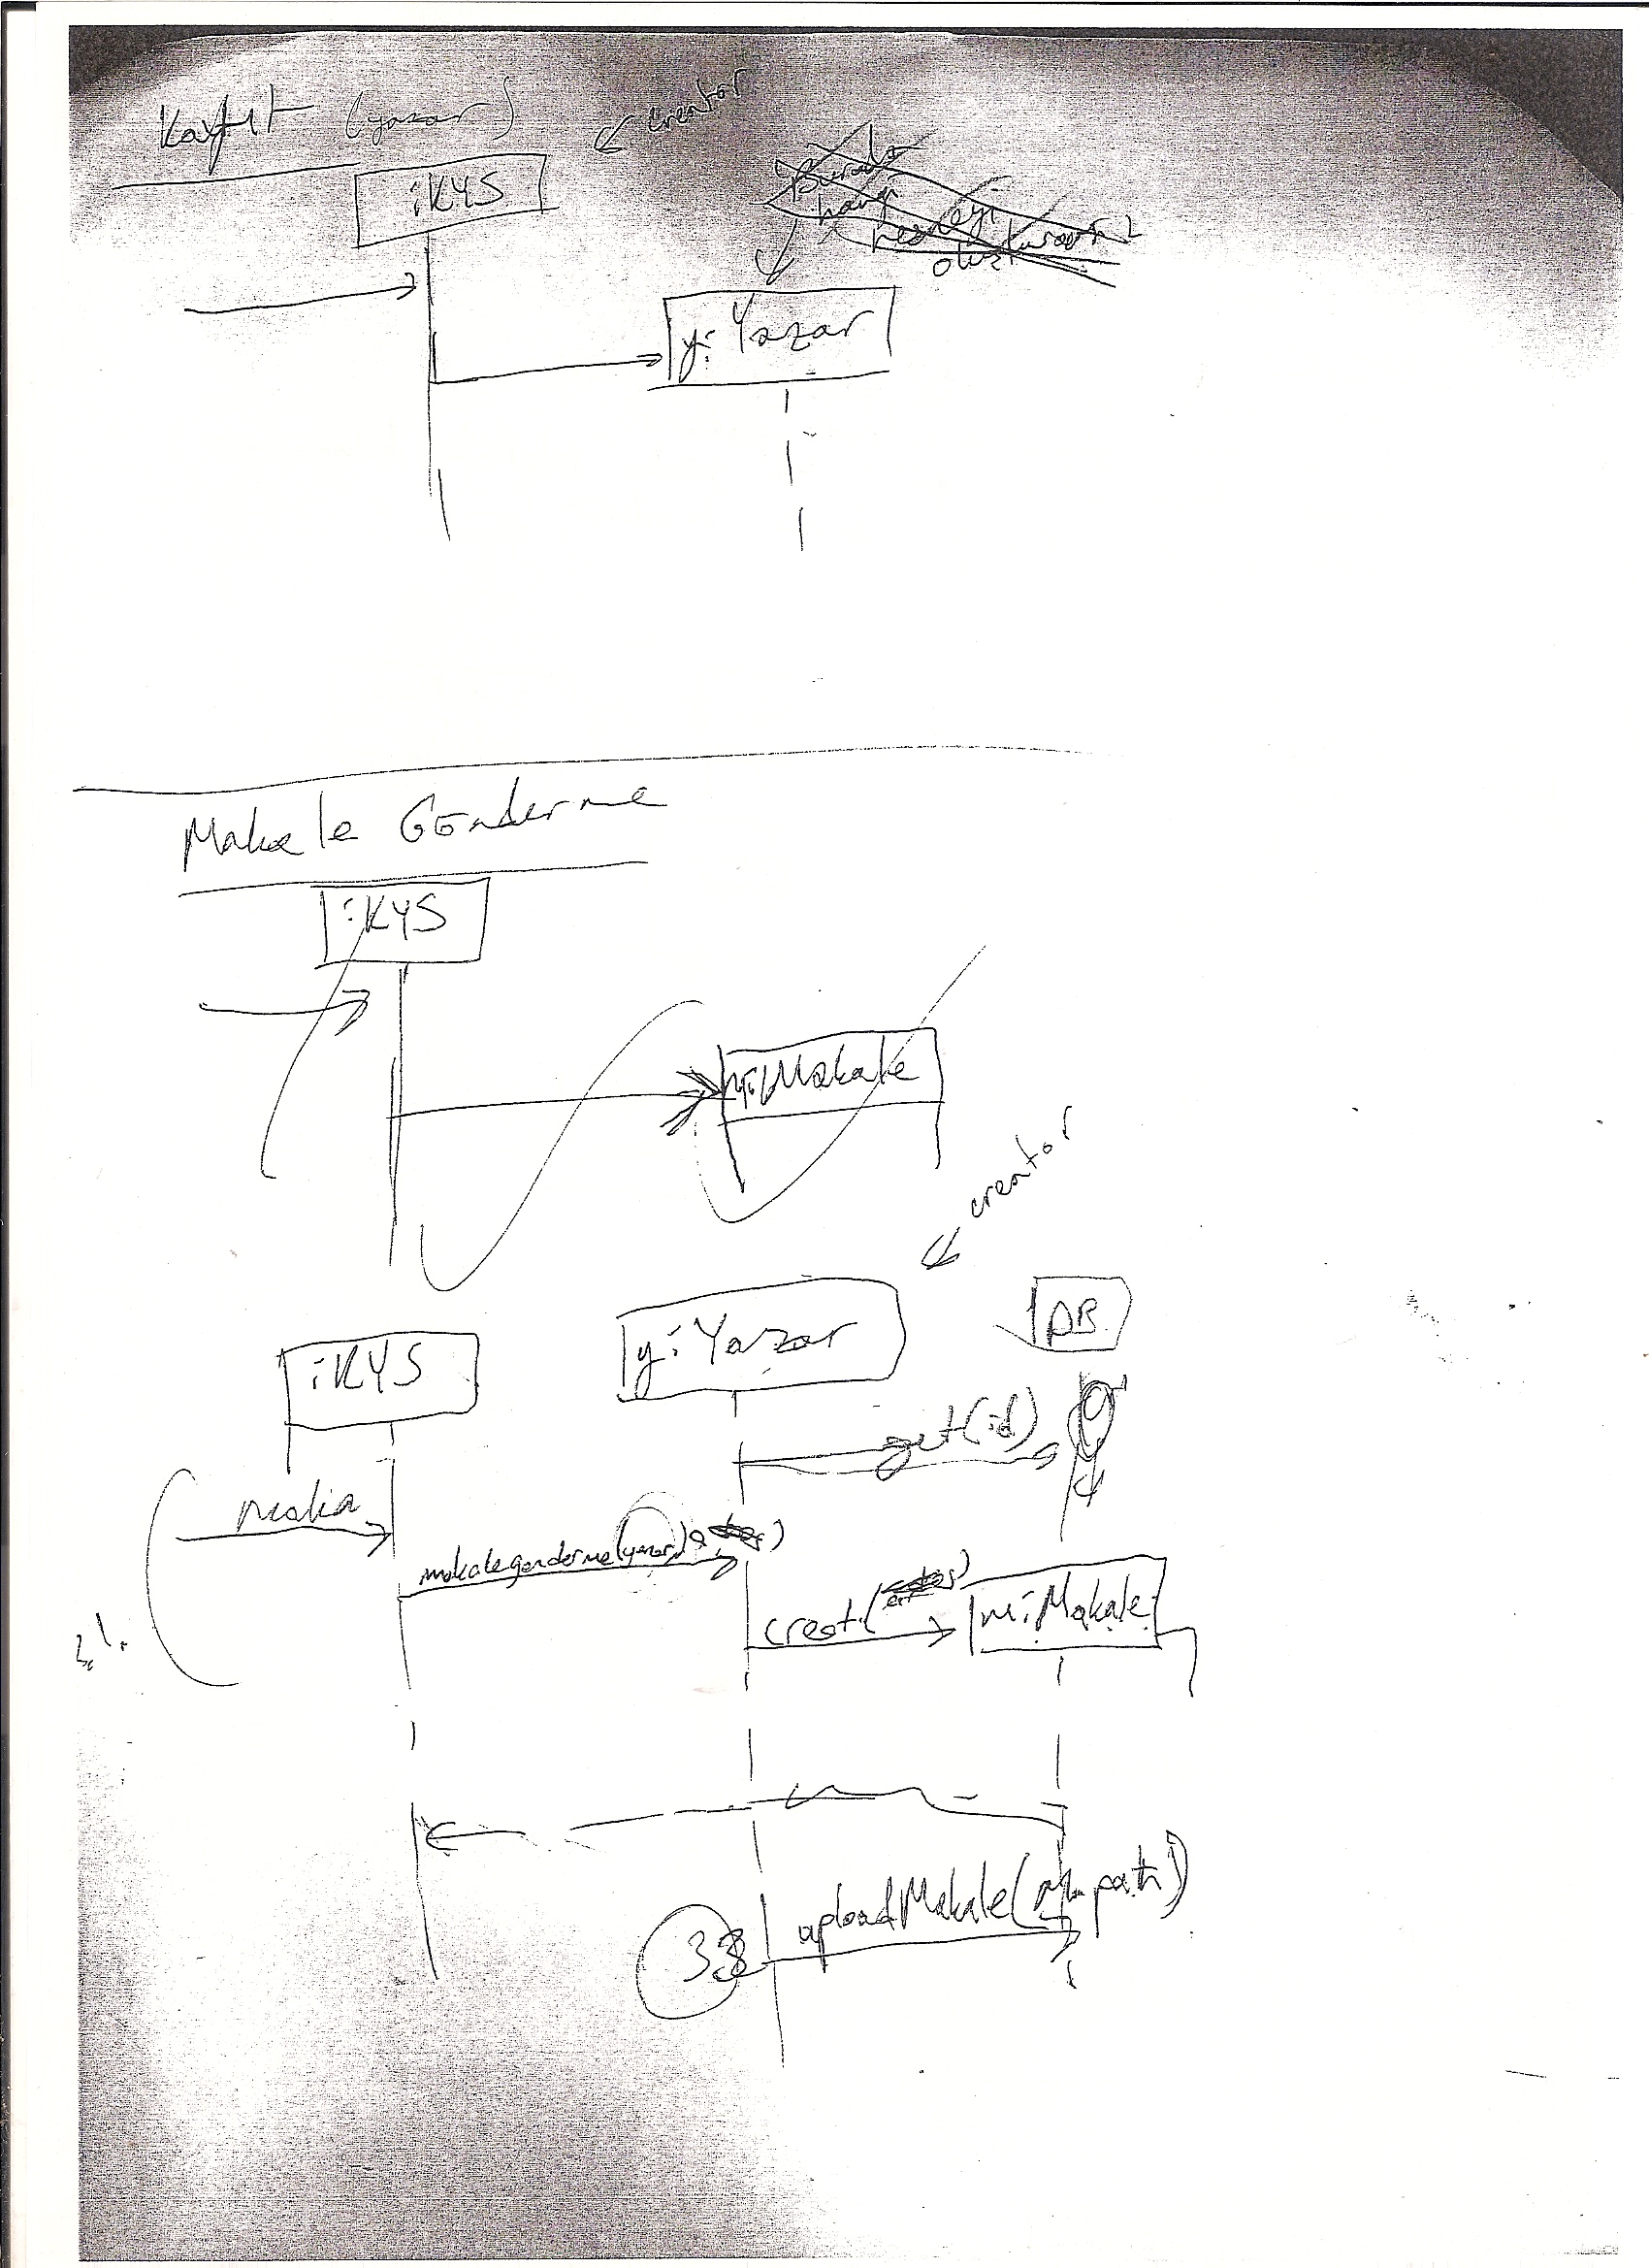 Kayıt (yazar)
creator
:KYS
Burada
hangi
nesneyi
y: Yazar
Makale Gönderme
:KYS
m:Makale
creator
:KYS
y: Yazar
DB
get(id)
makalegonderme(yazar
creat(
m: Makale
uploadMakale(
path)
33